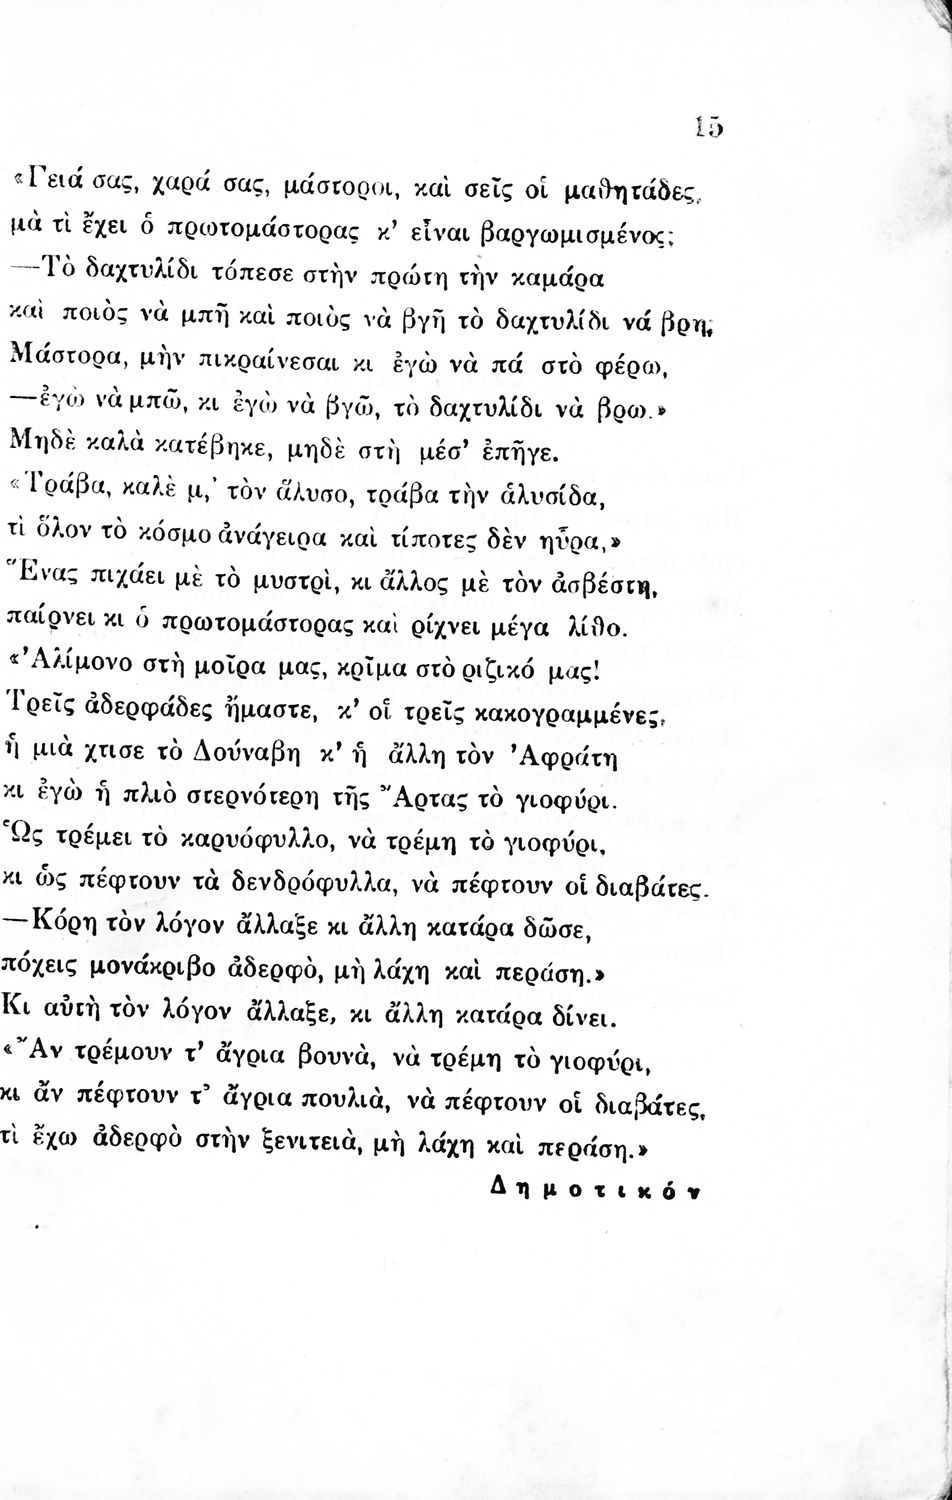 15
«Γειά σας, χαρά σας, μάστοροι, καὶ σεῖς οἱ μαθητάδες,
μὰ τὶ ἔχει ὁ πρωτομάστορας κ’ εἶναι βαργωμισμένος;
—Τὸ δαχτυλίδι τόπεσε στὴν πρώτη τὴν καμάρα
καὶ ποιὸς νὰ μπῇ καὶ ποιὸς νὰ βγῇ τὸ δαχτυλίδι νά βρῃ;
Μάστορα, μὴν πικραίνεσαι κι ἐγὼ νὰ πά στὸ φέρω,
—ἐγὼ νὰ μπῶ, κι ἐγὼ νὰ βγῶ, τὸ δαχτυλίδι νὰ βρω.»
Μηδὲ καλὰ κατέβηκε, μηδὲ στὴ μέσ’ ἐπῆγε.
«Τράβα, καλὲ μ,’ τὸν ἅλυσο, τράβα τὴν ἁλυσίδα,
τὶ ὅλον τὸ κόσμο ἀνάγειρα καὶ τίποτες δὲν ηὗρα,»
Ἕνας πιχάει μὲ τὸ μυστρὶ, κι ἄλλος μὲ τὸν ἀσβέστη,
παίρνει κι ὁ πρωτομάστορας καὶ ρίχνει μέγα λίθο.
«’Αλίμονο στὴ μοῖρα μας, κρῖμα στὸ ριζικό μας!
Τρεῖς ἀδερφάδες ἤμαστε, κ’ οἱ τρεῖς κακογραμμένες,
ἡ μιὰ χτισε τὸ Δούναβη κ’ ἡ ἄλλη τὸν ’Αφράτη
κι ἐγὼ ἡ πλιὸ στερνότερη τῆς Ἄρτας τὸ γιοφύρι.
Ὡς τρέμει τὸ καρυόφυλλο, νὰ τρέμη τὸ γιοφύρι,
κι ὡς πέφτουν τὰ δενδρόφυλλα, νὰ πέφτουν οἱ διαβάτες.
—Κόρη τὸν λόγον ἄλλαξε κι ἄλλη κατάρα δῶσε,
πόχεις μονάκριβο ἀδερφὸ, μὴ λάχη καὶ περάση.»
Κι αὐτὴ τὸν λόγον ἄλλαξε, κι ἄλλη κατάρα δίνει.
«Ἂν τρέμουν τ’ ἄγρια βουνὰ, νὰ τρέμη τὸ γιοφύρι,
κι ἄν πέφτουν τ’ ἄγρια πουλιὰ, νὰ πέφτουν οἱ διαβάτες,
τὶ ἔχω ἀδερφὸ στὴν ξενιτειὰ, μὴ λάχη καὶ περάση.»
Δημοτικόν